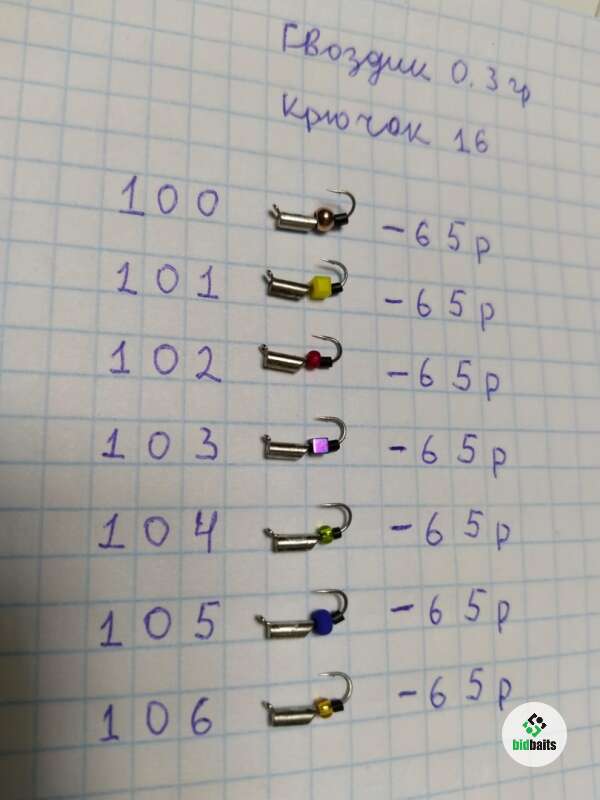 Гвоздик 0.3гр
Крючок 16
100 -65р
101 -65р
102 -65р
103 -65р
104 -65р
105 -65р
106 -65р
bidbaits